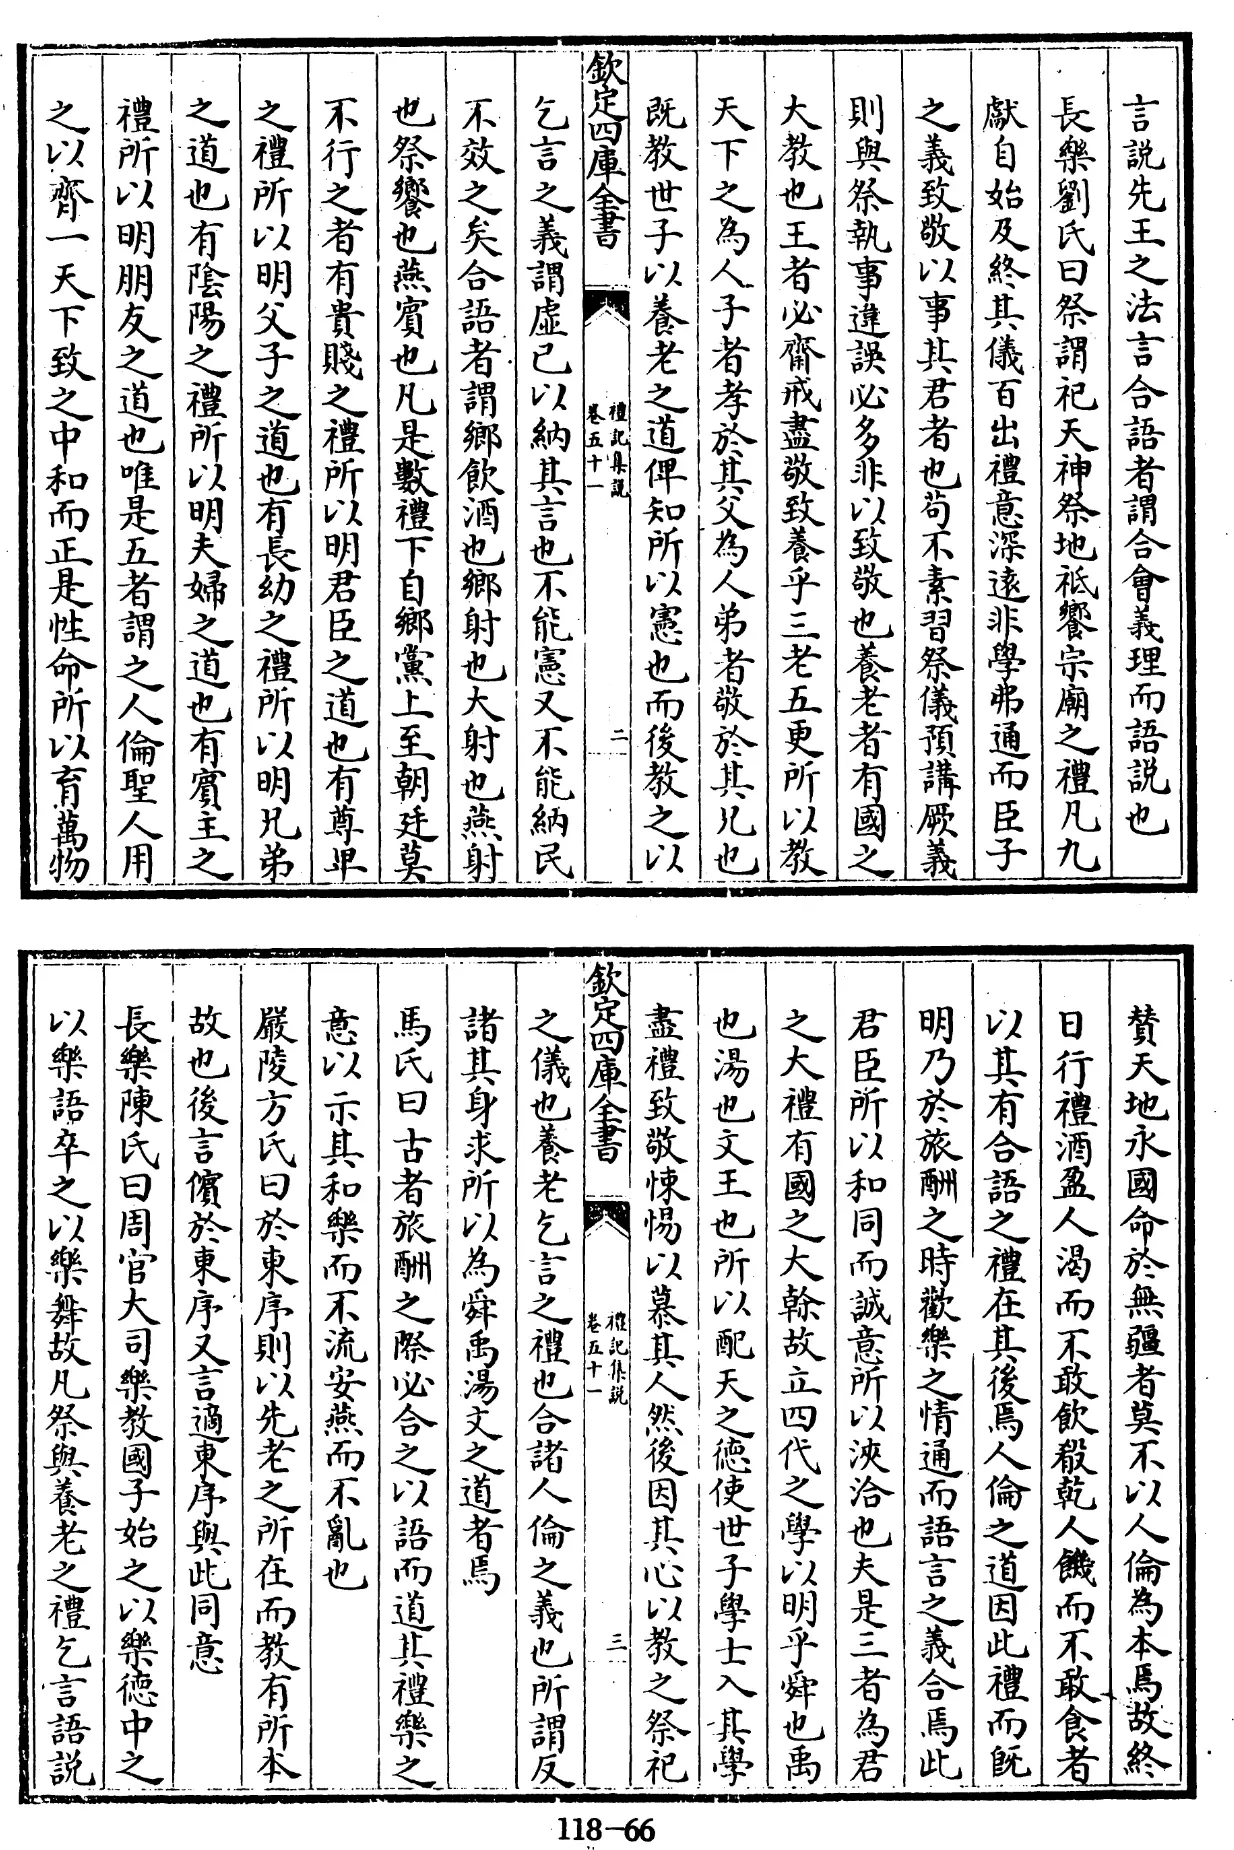 言説先王之法言合語者謂合會義理而語説也
長樂劉氏曰祭謂祀天神祭地祗饗宗廟之禮凡九
獻自始及終其儀百出禮意深遠非學弗通而臣子
之義致敬以事其君者也苟不素習祭儀預講厥義
則與祭執事違誤必多非以致敬也養老者有國之
大教也王者必齋戒盡敬致養乎三老五更所以教
天下之為人子者孝於其父為人弟者敬於其兄也
既教世子以養老之道俾知所以憲也而後教之以
欽定四庫全書
禮記集説
卷五十一
二
乞言之義謂虛已以納其言也不能憲又不能納民
不效之矣合語者謂鄉飲酒也鄉射也大射也燕射
也祭饗也燕賓也凡是數禮下自鄉黨上至朝廷莫
不行之者有貴賤之禮所以明君臣之道也有尊卑
之禮所以明父子之道也有長幼之禮所以明兄弟
之道也有陰陽之禮所以明夫婦之道也有賓主之
禮所以明朋友之道也唯是五者謂之人倫聖人用
之以齊一天下致之中和而正是性命所以育萬物
贊天地永國命於無疆者莫不以人倫為本焉故終
日行禮酒盈人渴而不敢飲殽乾人饑而不敢食者
以其有合語之禮在其後焉人倫之道因此禮而既
明乃於旅酬之時歡樂之情通而語言之義合焉此
君臣所以和同而誠意所以浹洽也夫是三者為君
之大禮有國之大幹故立四代之學以明乎舜也禹
也湯也文王也所以配天之德使世子學士入其學
盡禮致敬悚惕以慕其人然後因其心以教之祭祀
欽定四庫全書
禮記集説
卷五十一
三
之儀也養老乞言之禮也合諸人倫之義也所謂反
諸其身求所以為舜禹湯文之道者焉
馬氏曰古者旅酬之際必合之以語而道其禮樂之
意以示其和樂而不流安燕而不亂也
嚴陵方氏曰於東序則以先老之所在而教有所本
故也後言儐於東序又言適東序與此同意
長樂陳氏曰周官大司樂教國子始之以樂德中之
以樂語卒之以樂舞故凡祭與養老之禮乞言語説
118-66